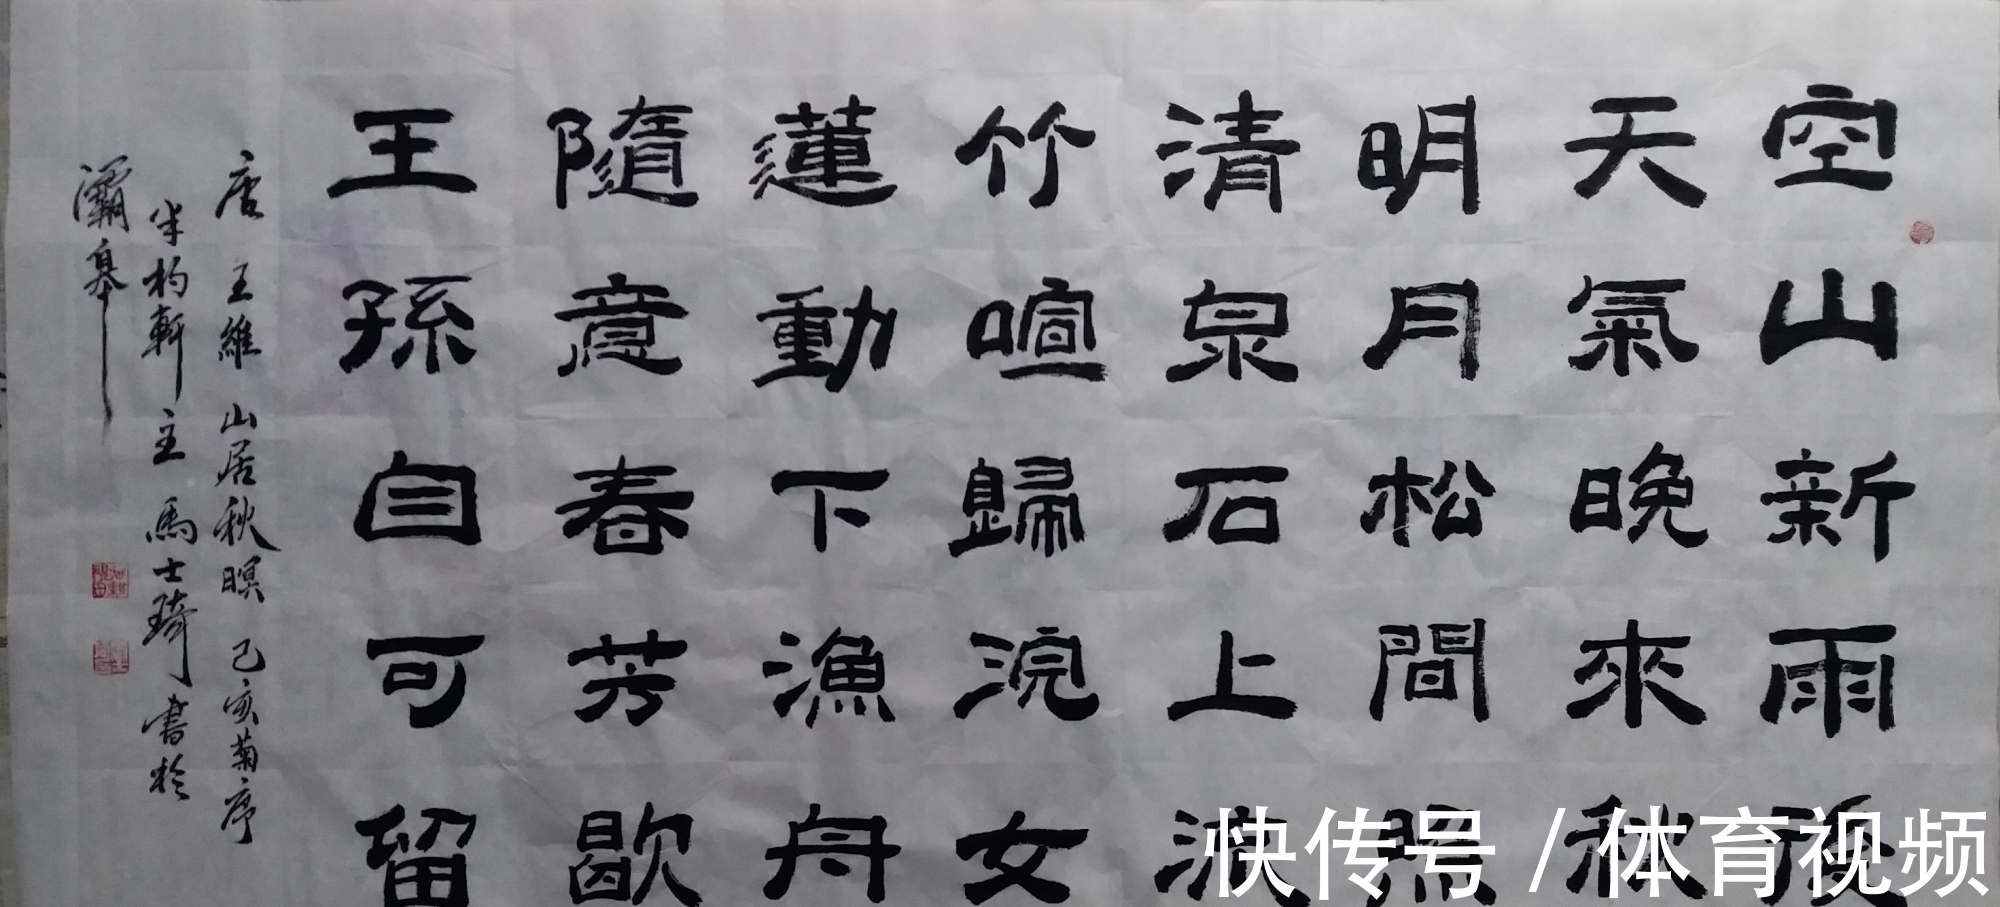 空山新雨後
天氣晚來秋
明月松間照
清泉石上流
竹喧歸浣女
蓮動下漁舟
隨意春芳歇
王孫自可留
唐 王維 山居秋暝 己亥菊序
半杓軒主 馬士琦書於
灞皋
快传号 / 体育视频